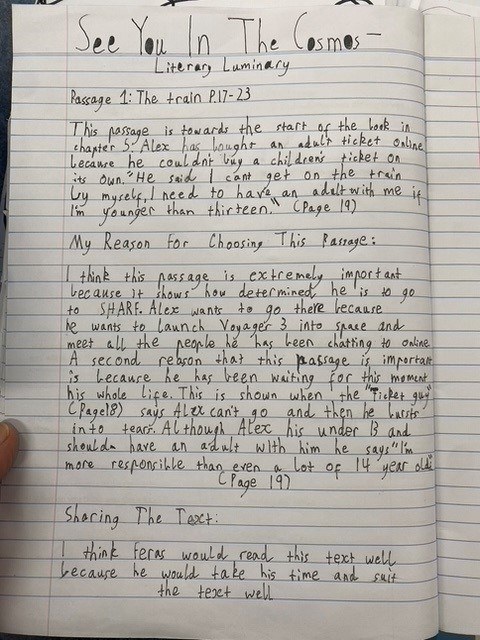 See You In The Cosmos-
Literary Luminary
Passage 1: The train P.17-23
This passage is towards the start of the book in
chapter 5. Alex has bought an adult ticket online
because he couldnt buy a children's ticket on
its own. "He said I cant get on the train
by myself, I need to have an adult with me if
I'm younger than thirteen." (Page 19)
My Reason For Choosing This Passage:
I think this passage is extremely important
because it shows how determined he is to go
to SHARF. Alex wants to go there because
he wants to launch Voyager 3 into space and
meet all the people he has been chatting to online.
A second reason that this passage is important
is because he has been waiting for this moment
his whole life. This is shown when the "Ticket guy"
(Page18) says Alex can't go and then he bursts
into tears. Although Alex his under 13 and
should have an adult with him he says "I'm
more responsible than even a lot of 14 year olds"
(Page 19)
Sharing The Text:
I think Feras would read this text well
because he would take his time and suit
the text well